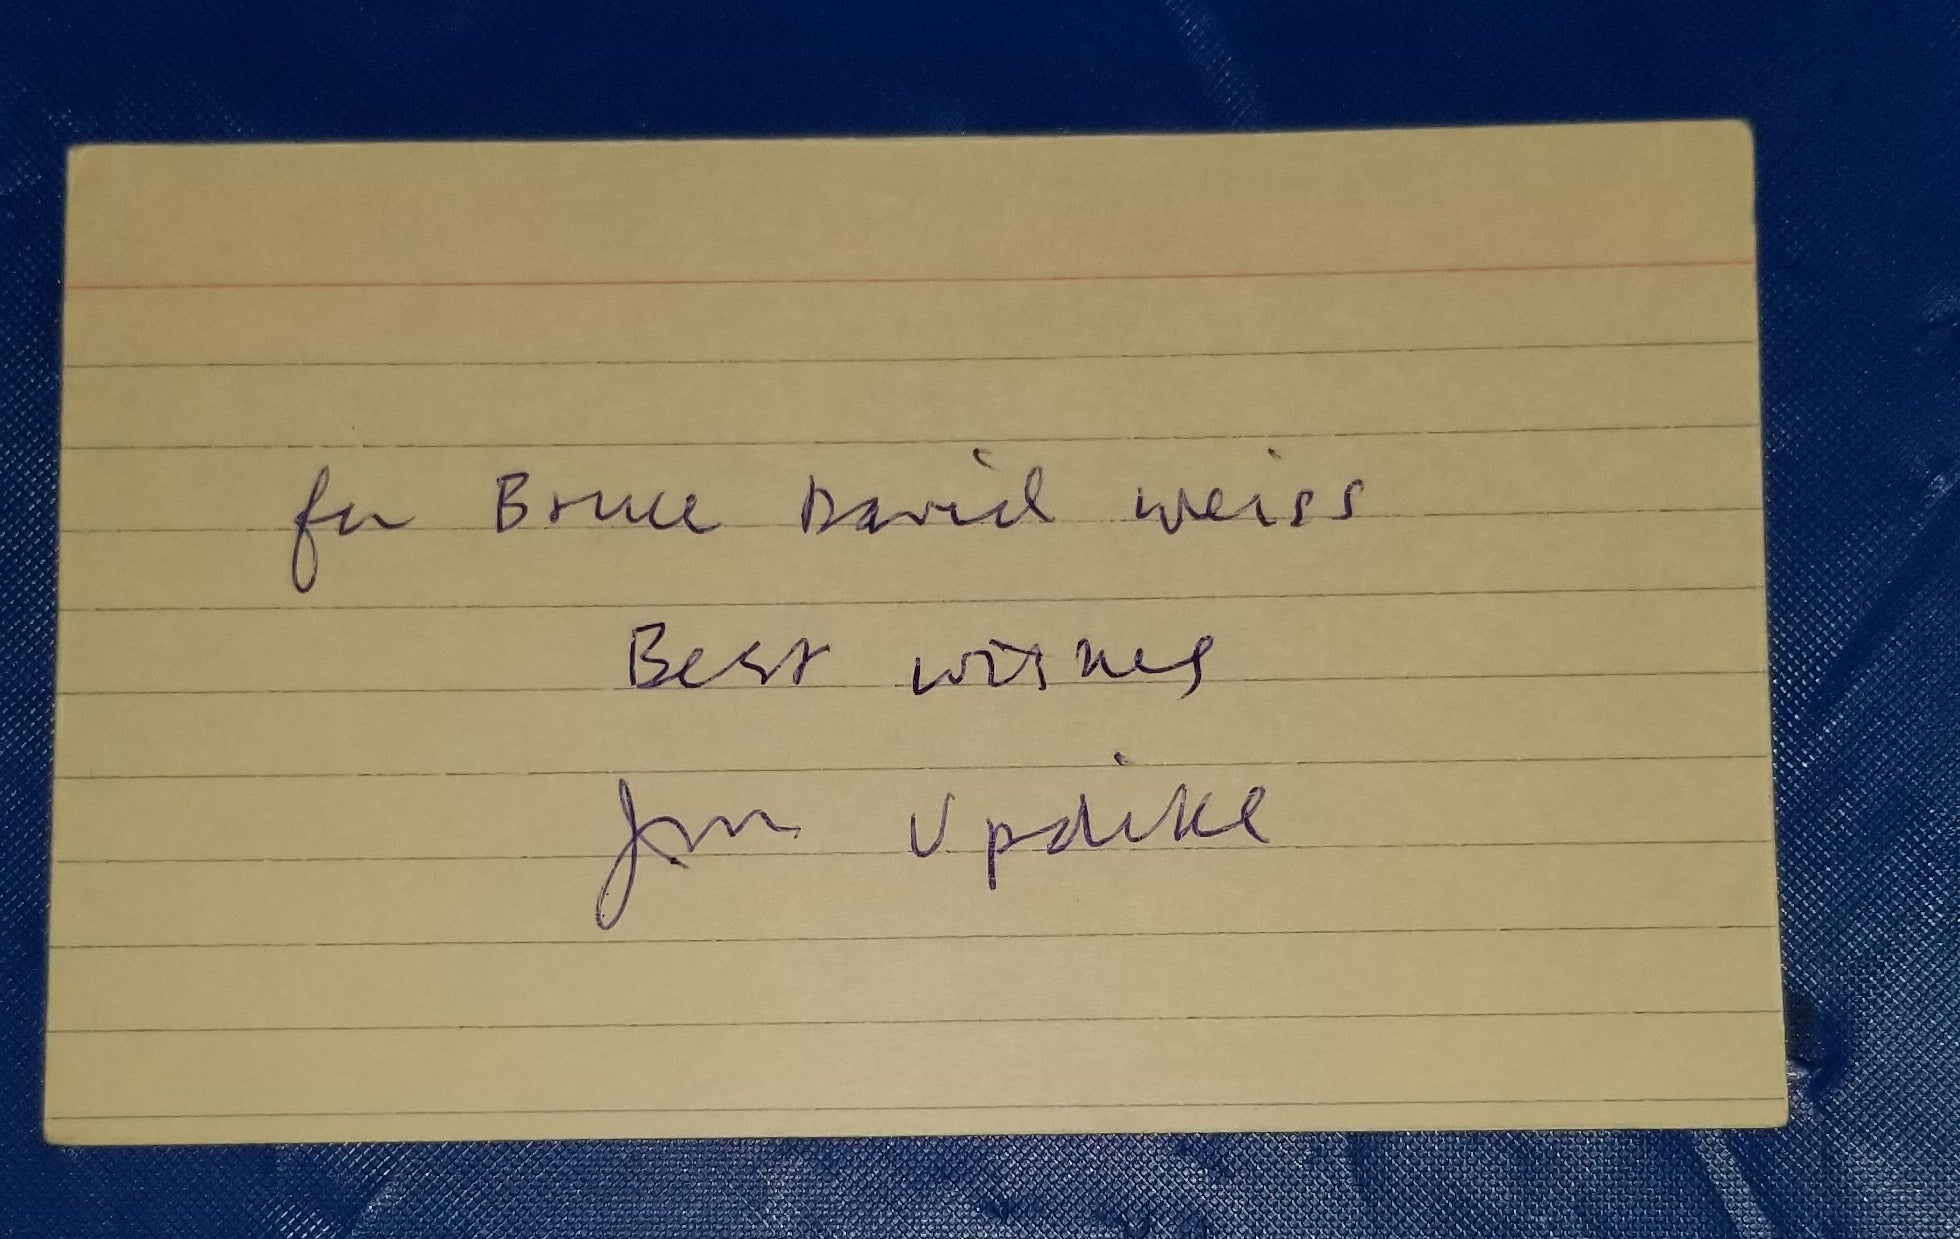 for Bruce David Weiss
Best wishes
John Updike